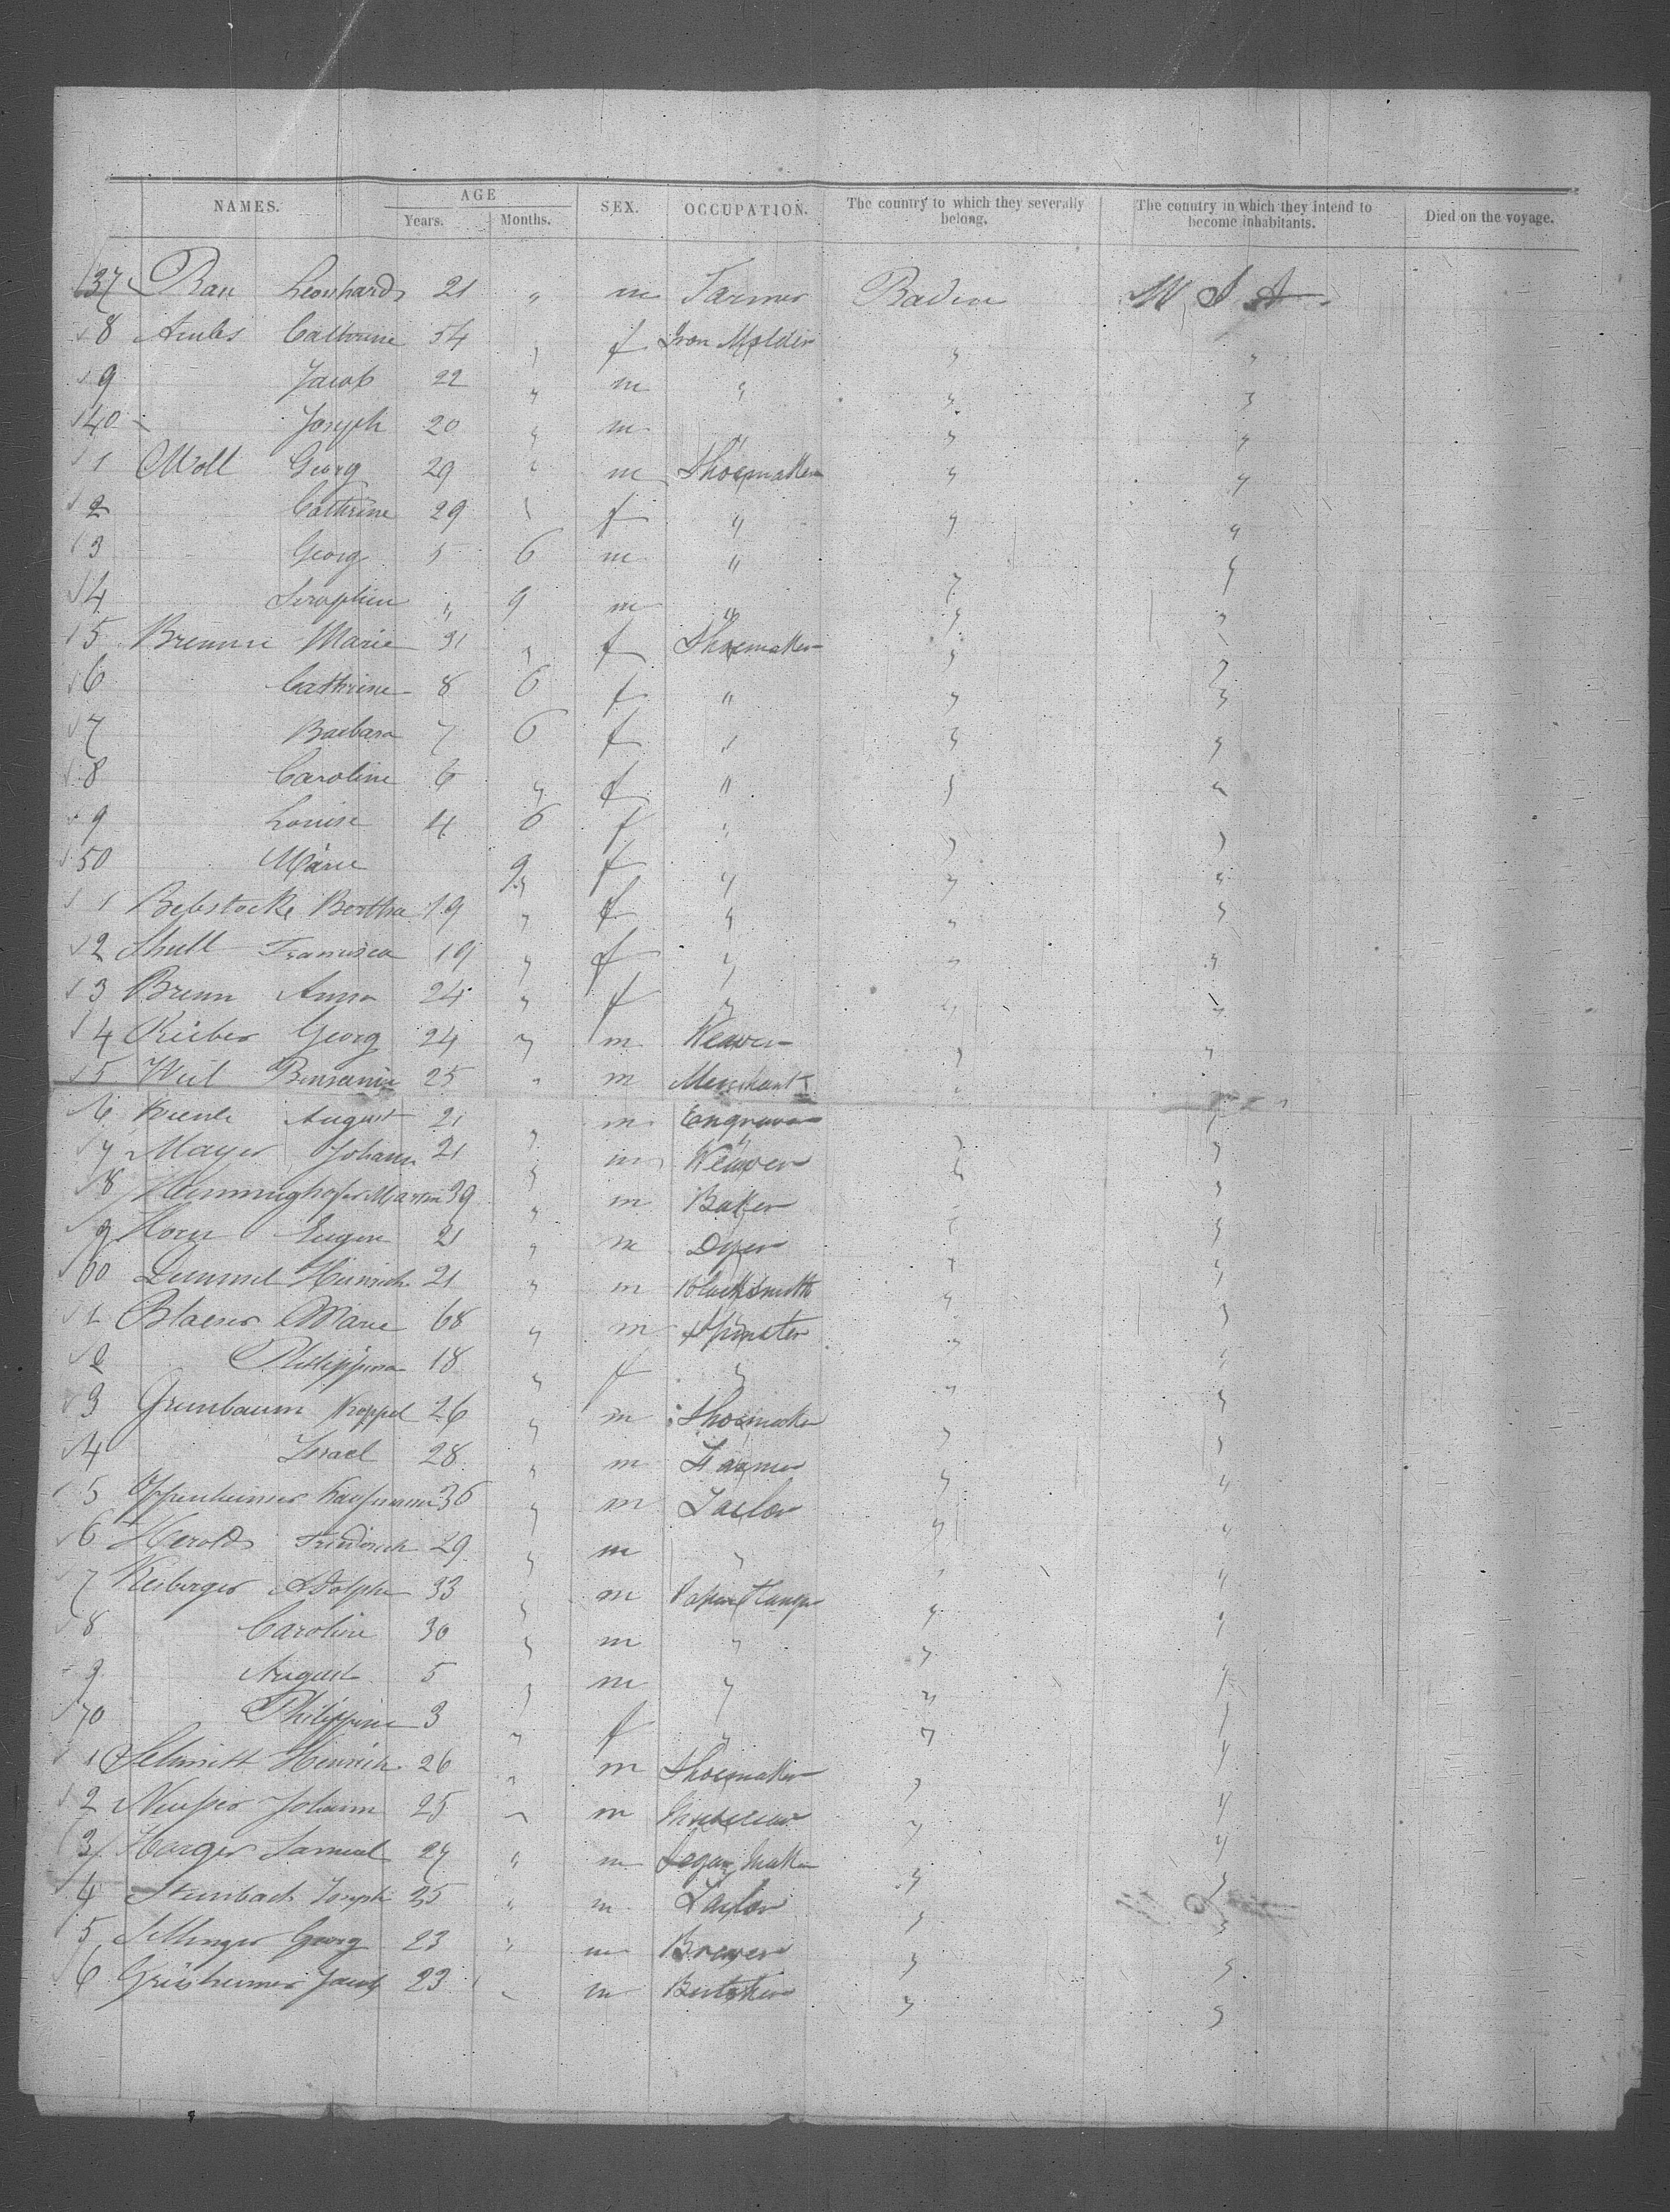 NAMES. AGE SEX. OCCUPATION. The country to which they severally belong. The country in which they intend to become inhabitants. Died on the voyage.
Years. Months.
137 Rau Leonhard 21 " m Farmer Baden U S A
8 Cathrine 54 " f Iron Molder " "
9 Jacob 22 " m " " "
140 Joseph 20 " m " " "
1 Moll Georg 29 " m Shoemaker " "
2 Cathrine 29 " f " " "
3 Georg 5 6 m " " "
4 Seraphin " 9 m " " "
5 Marie 31 " f Shoemaker " "
6 Cathrine 8 6 f " " "
7 Barbara 7 6 f " " "
8 Caroline 6 " f " " "
9 Louise 4 6 f " " "
150 Marie 9 f " " "
1 Bebstocke Bertha 19 " f " " "
2 Shull Francisca 19 " f " " "
3 Brenn Anna 24 " f " " "
4 Rieber Georg 24 " m Weaver " "
5 Weil Benjamin 25 " m Merchant " "
6 August 21 " m Engraver " "
7 Mayer Johann 21 " m Weaver " "
8 Martin 39 " m Baker " "
9 Horn Eugen 21 " m Dyer " "
160 Heinrich 21 " m Blacksmith " "
1 Blaeser Marie 68 " m Spinster " "
2 Philippina 18 " f " " "
3 Grunbaum Koppel 26 " m Shoemaker " "
4 Israel 28 " m Farmer " "
5 Oppenheimer Kaufmann 36 " m Tailor " "
6 Herold Friedrich 29 " m " " "
7 Adolph 33 " m Paper Hanger " "
8 Caroline 30 " m " " "
9 August 5 " m " " "
170 Philippine 3 " f " " "
1 Schmitt Heinrich 26 " m Shoemaker " "
2 Johann 25 " m " "
3 Harger Samuel 24 " m Segar Maker " "
4 Steinbach Joseph 25 " m Tailor " "
5 Georg 23 " m Brewer " "
6 Griesheimer Jacob 23 " m Butcher " "